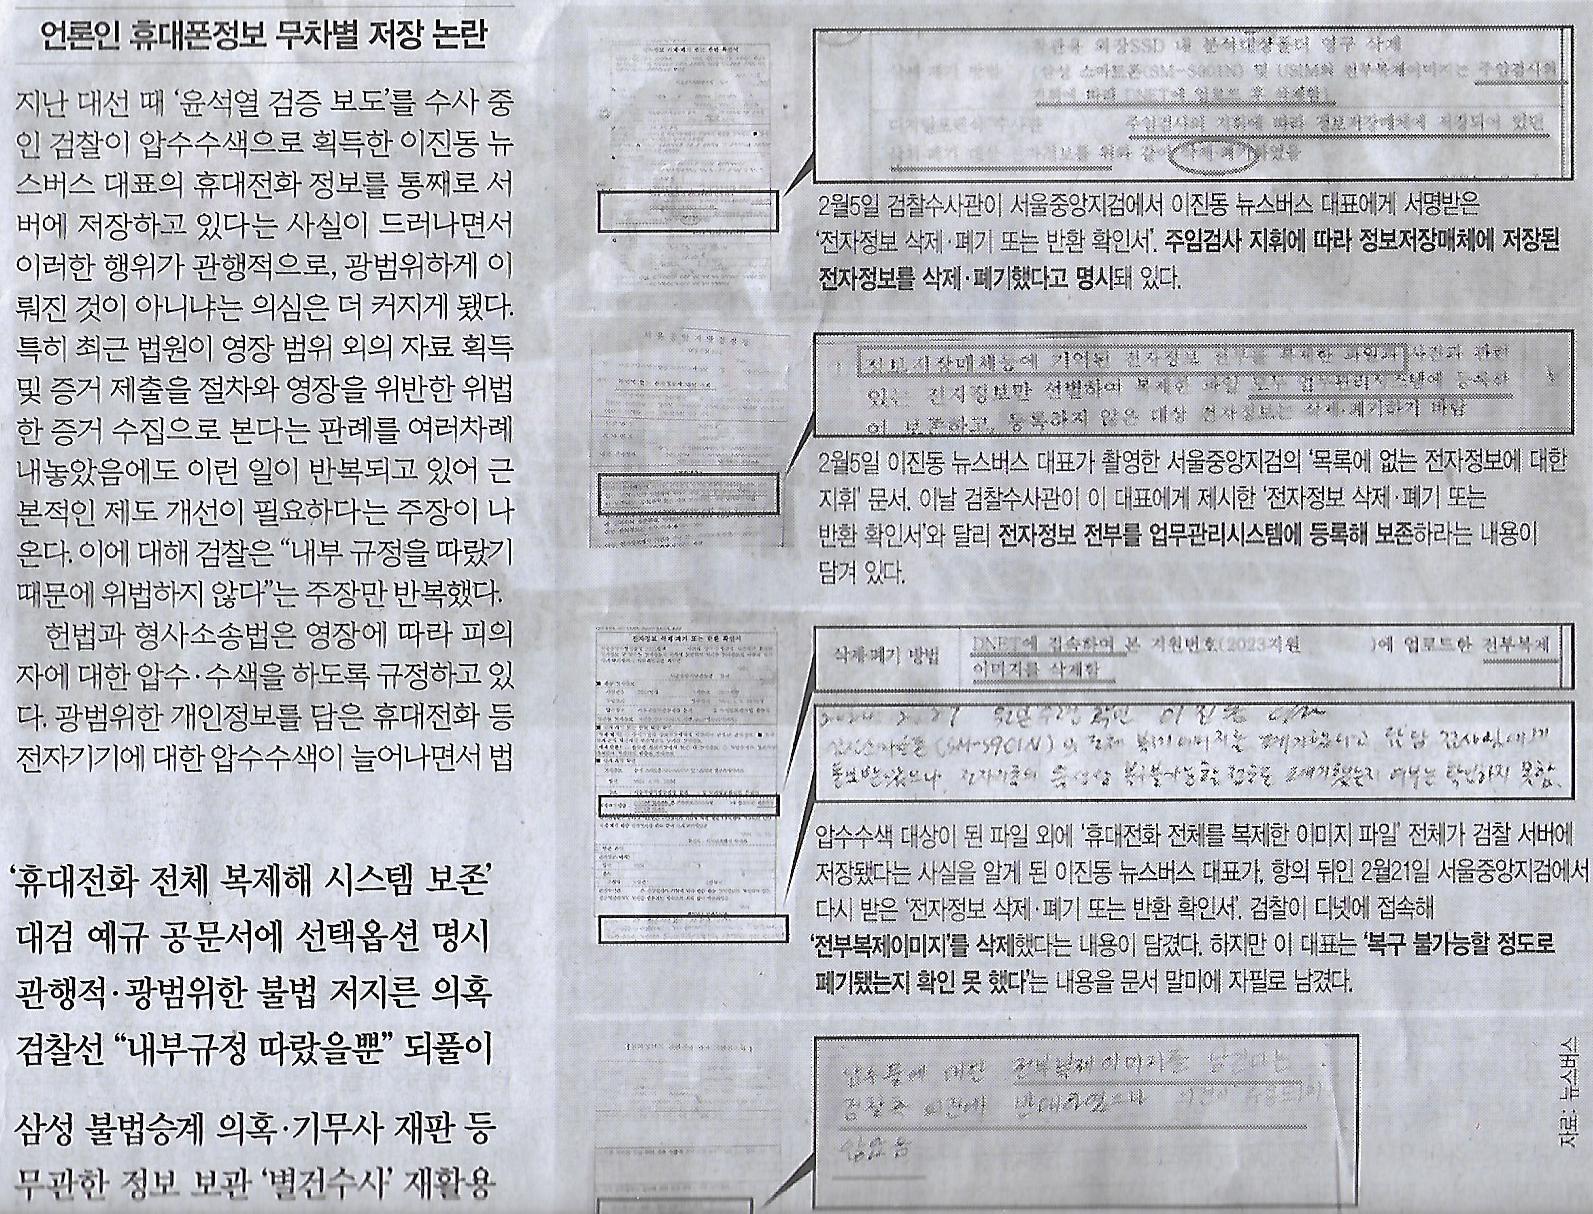 언론인 휴대폰정보 무차별 저장 논란
지난 대선 때 ‘윤석열 검증 보도’를 수사 중
인 검찰이 압수수색으로 획득한 이진동 뉴
스버스 대표의 휴대전화 정보를 통째로 서
버에 저장하고 있다는 사실이 드러나면서
이러한 행위가 관행적으로, 광범위하게 이
뤄진 것이 아니냐는 의심은 더 커지게 됐다.
특히 최근 법원이 영장 범위 외의 자료 획득
및 증거 제출을 절차와 영장을 위반한 위법
한 증거 수집으로 본다는 판례를 여러차례
내놓았음에도 이런 일이 반복되고 있어 근
본적인 제도 개선이 필요하다는 주장이 나
온다. 이에 대해 검찰은 “내부 규정을 따랐기
때문에 위법하지 않다”는 주장만 반복했다.
헌법과 형사소송법은 영장에 따라 피의
자에 대한 압수·수색을 하도록 규정하고 있
다. 광범위한 개인정보를 담은 휴대전화 등
전자기기에 대한 압수수색이 늘어나면서 법
‘휴대전화 전체 복제해 시스템 보존’
대검 예규 공문서에 선택옵션 명시
관행적·광범위한 불법 저지른 의혹
검찰선 “내부규정 따랐을뿐” 되풀이
삼성 불법승계 의혹·기무사 재판 등
무관한 정보 보관 ‘별건수사’ 재활용
외장SSD 내 분석대상폴더 영구 삭제
스마트폰(SM-S901N) 및 USIM의 전부복제이미지는 주임검사의
지휘에 따라 DNET에 업로드 후 삭제함
주임검사의 지휘에 따라 정보저장매체에 저장되어 있던
위와 같이 삭제·폐기하였음
2월5일 검찰수사관이 서울중앙지검에서 이진동 뉴스버스 대표에게 서명받은
‘전자정보 삭제·폐기 또는 반환 확인서’. 주임검사 지휘에 따라 정보저장매체에 저장된
전자정보를 삭제·폐기했다고 명시돼 있다.
정보저장매체등에 기억된 전자정보 전부를 복제한 파일과 사건과 관련
있는 전자정보만 선별하여 복제한 파일 모두 업무관리시스템에 등록하
여 보존하고, 등록하지 않은 대상 전자정보는 삭제·폐기하기 바람
2월5일 이진동 뉴스버스 대표가 촬영한 서울중앙지검의 ‘목록에 없는 전자정보에 대한
지휘’ 문서. 이날 검찰수사관이 이 대표에게 제시한 ‘전자정보 삭제·폐기 또는
반환 확인서’와 달리 전자정보 전부를 업무관리시스템에 등록해 보존하라는 내용이
담겨 있다.
전자정보 삭제·폐기 또는 반환 확인서
삭제·폐기 방법
DNET에 접속하여 본 지원번호(2023지원 )에 업로드한 전부복제
이미지를 삭제함
2024. 2. 21 이진동
(SM-S901N)의 전체 복제 이미지를 폐기하였다고 담당 검사실에게
통보받았으나, 전자기록의 특성상 복구불가능할 정도로 폐기됐는지 여부는 확인하지 못함.
압수수색 대상이 된 파일 외에 ‘휴대전화 전체를 복제한 이미지 파일’ 전체가 검찰 서버에
저장됐다는 사실을 알게 된 이진동 뉴스버스 대표가, 항의 뒤인 2월21일 서울중앙지검에서
다시 받은 ‘전자정보 삭제·폐기 또는 반환 확인서’. 검찰이 디넷에 접속해
‘전부복제이미지’를 삭제했다는 내용이 담겼다. 하지만 이 대표는 ‘복구 불가능할 정도로
폐기됐는지 확인 못 했다’는 내용을 문서 말미에 자필로 남겼다.
전부복제이미지를 남긴다는
검찰측 의견에 반대하였으나
않았음
자료: 뉴스버스